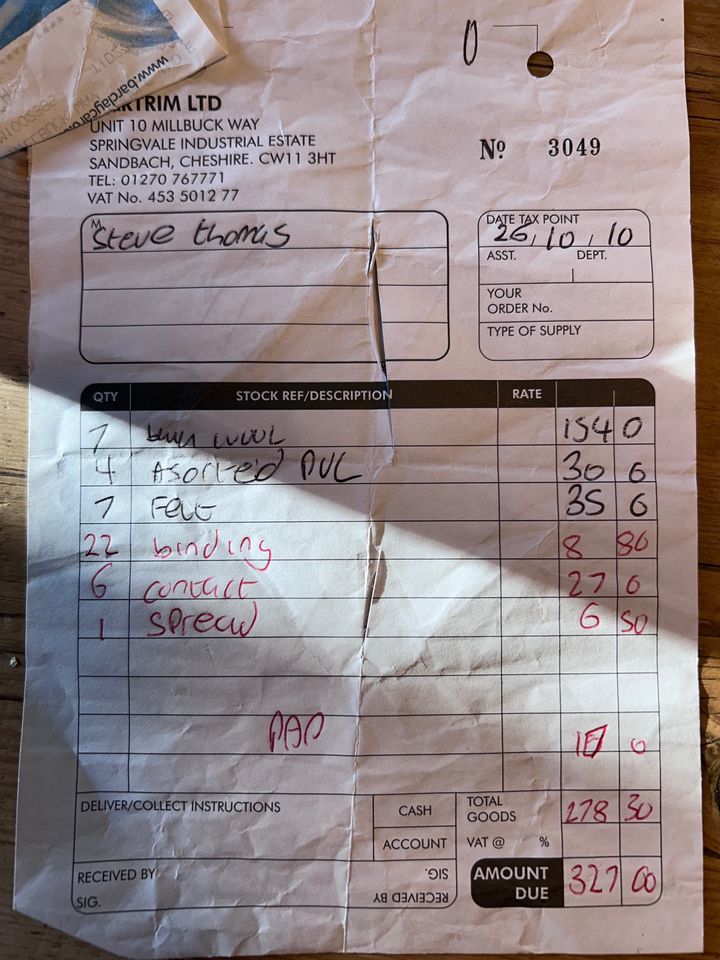 www.barclaycar
RTRIM LTD
UNIT 10 MILLBUCK WAY
SPRINGVALE INDUSTRIAL ESTATE
SANDBACH, CHESHIRE. CW11 3HT
TEL: 01270 767771
VAT No. 453 5012 77
Nº 3049
M
Steve thomas
DATE TAX POINT
26/10/10
ASST. DEPT.
YOUR
ORDER No.
TYPE OF SUPPLY
QTY STOCK REF/DESCRIPTION RATE
7 154 0
4 Asorted PVC 30 0
7 Felt 35 0
22 binding 8 80
6 contact 27 0
1 spread 6 50
0
DELIVER/COLLECT INSTRUCTIONS CASH TOTAL GOODS 278 30
ACCOUNT VAT @ %
RECEIVED BY AMOUNT DUE 327 00
SIG.
RECEIVED BY
SIG.